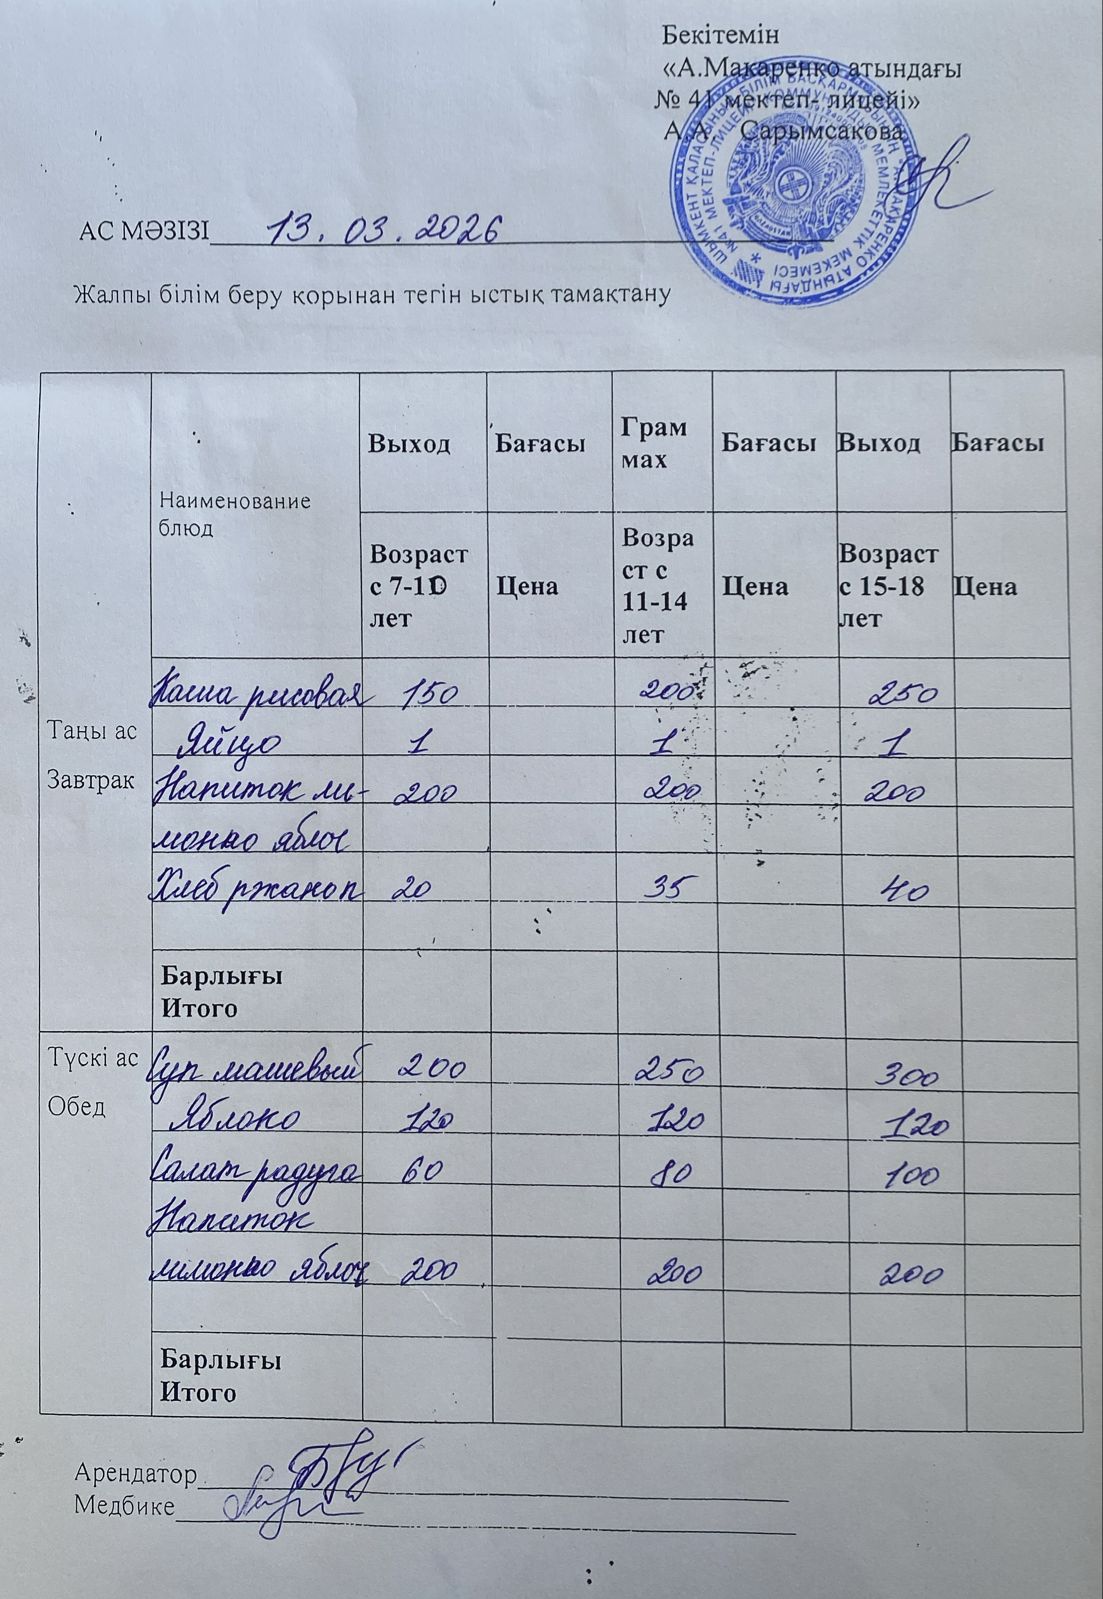 Бекітемін
«А.Макаренко атындағы
№ 41 мектеп- лицейі»
А.А. Сарымсакова
АС МӘЗІЗІ 13.03.2026
Жалпы білім беру қорынан тегін ыстық тамақтану
Наименование блюд Выход Бағасы Грам мах Бағасы Выход Бағасы
Возраст с 7-10 лет Цена Возра ст с 11-14 лет Цена Возраст с 15-18 лет Цена
Таңы ас
Завтрак
Каша рисовая 150 200 250
Яйцо 1 1 1
Напиток ли- 200 200 200
монно яблоч
Хлеб ржаноп 20 35 40
Барлығы
Итого
Түскі ас
Обед
Суп машевый 200 250 300
Яблоко 120 120 120
Салат радуга 60 80 100
Напиток
лимонно яблоч 200 200 200
Барлығы
Итого
Арендатор
Медбике